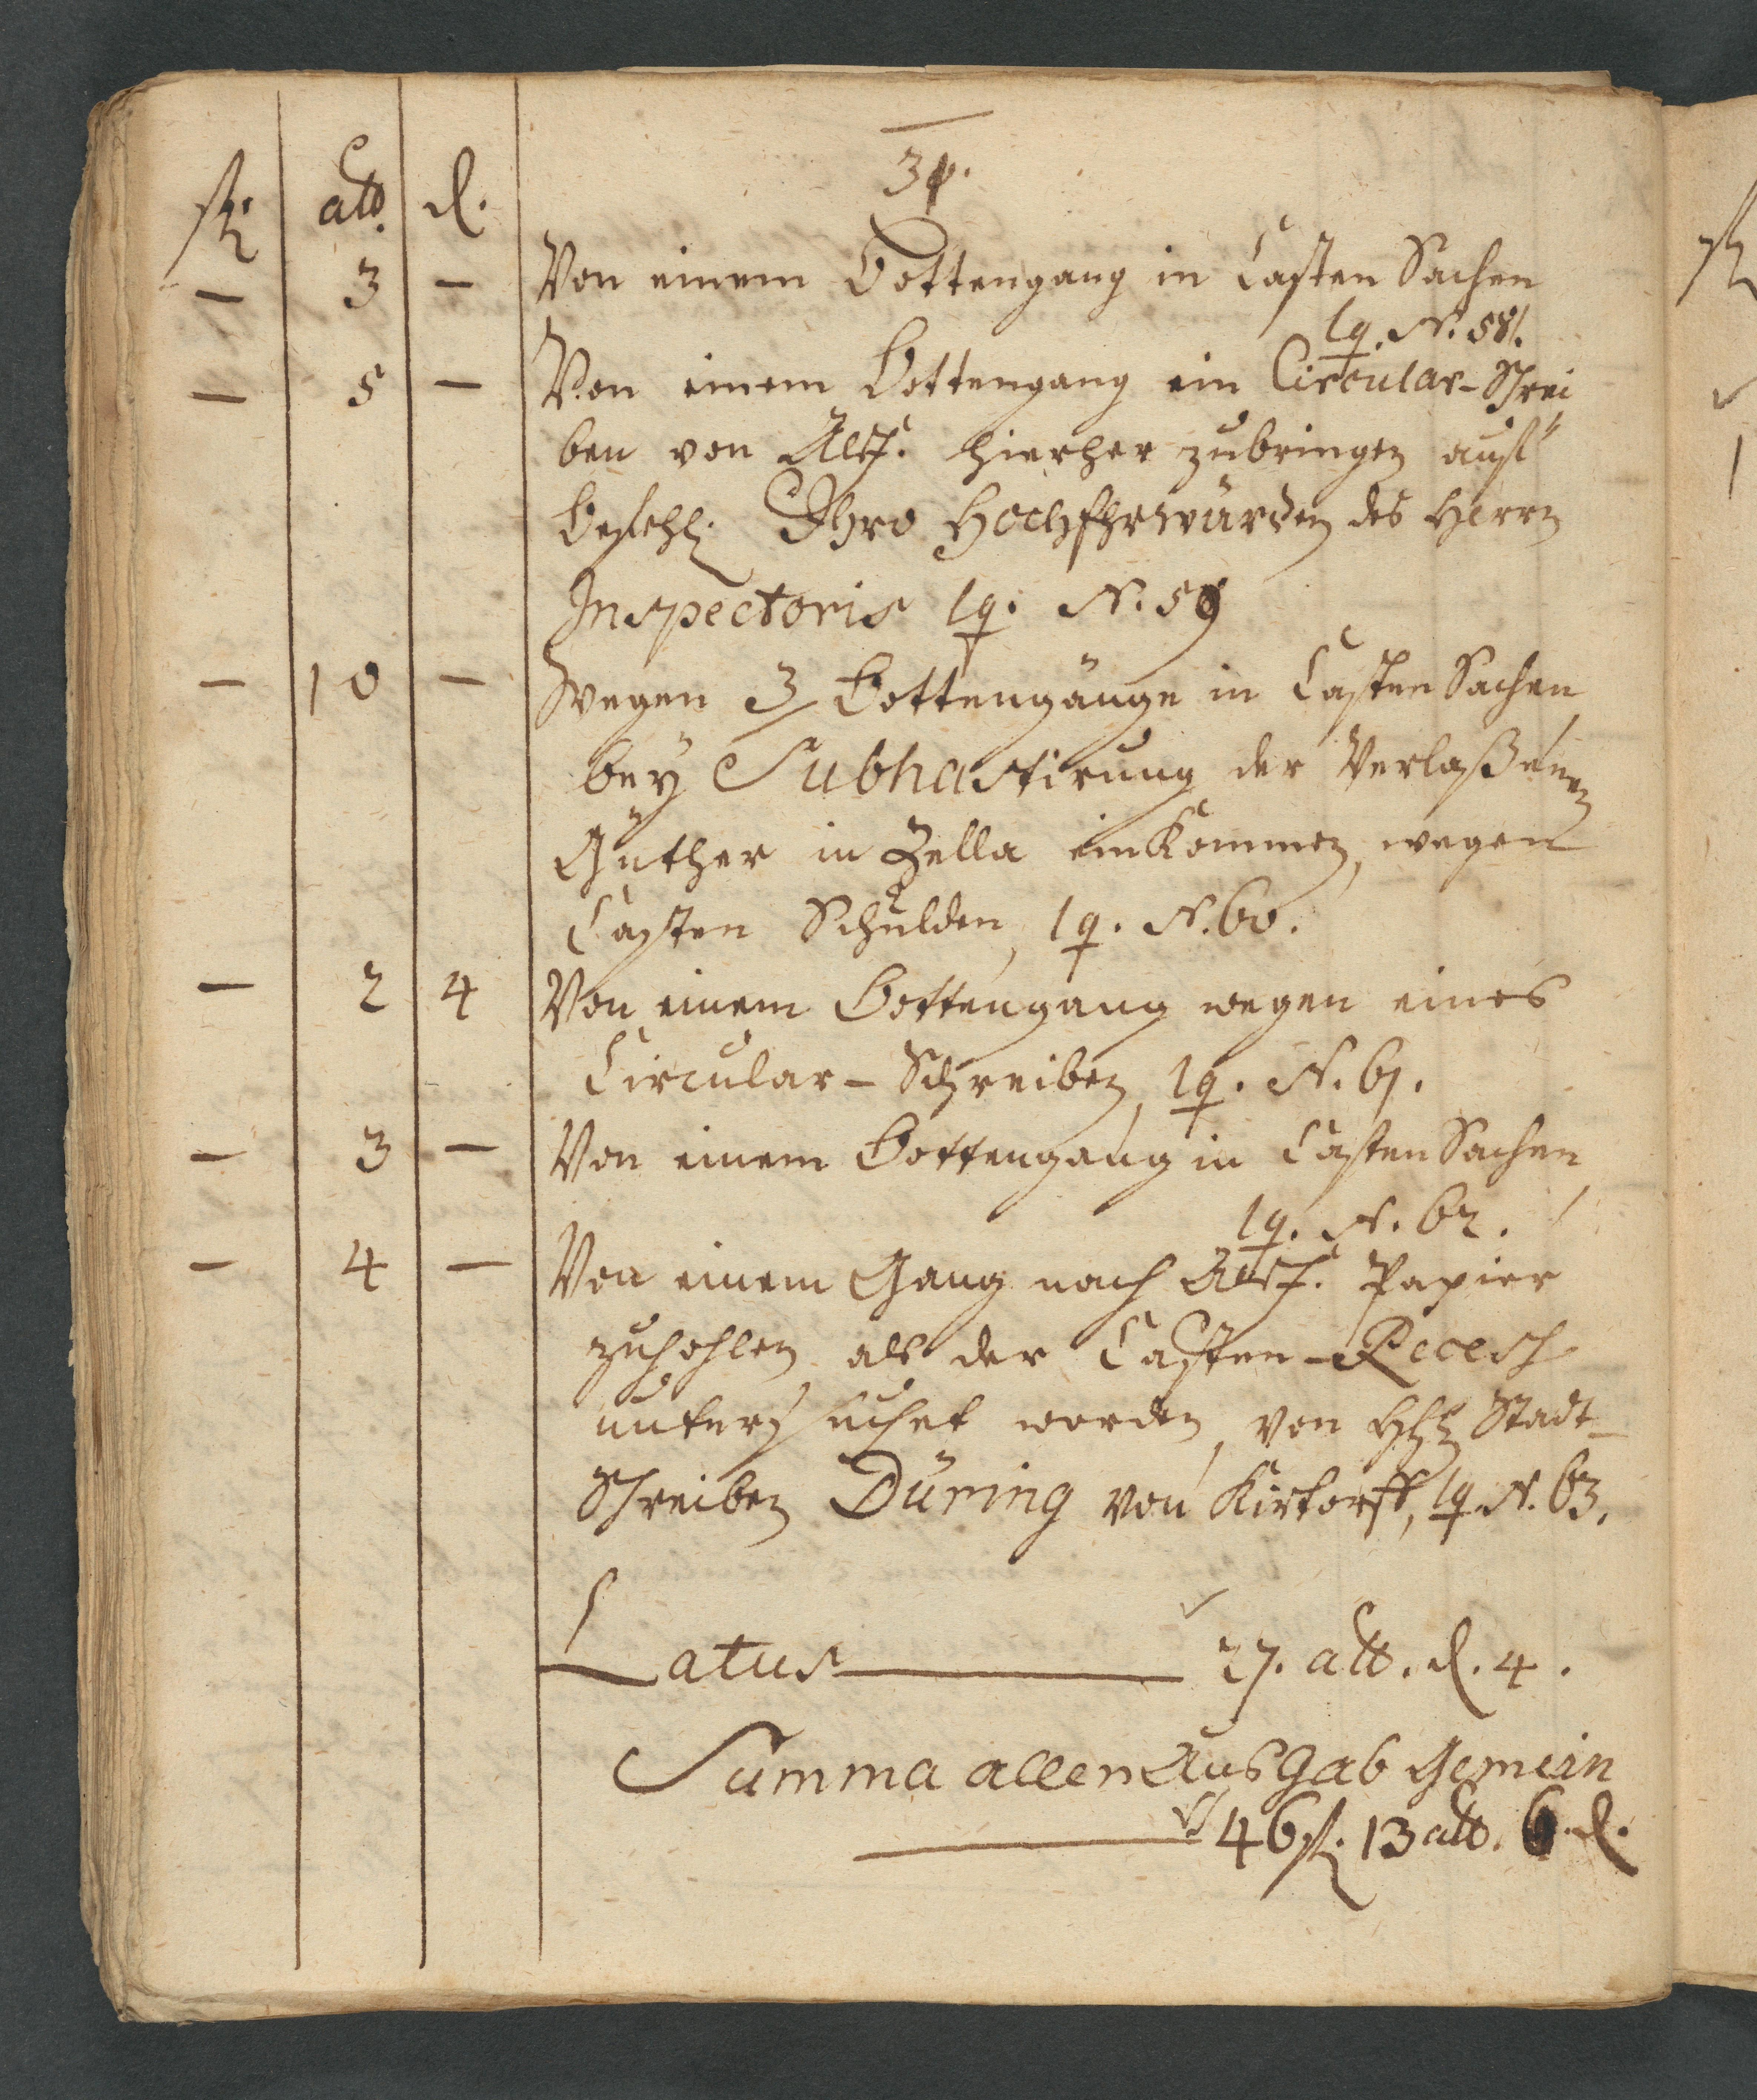 34.
fl. alb. d.
– 3 – Von einem Bottengang in Casten Sachen
lq. N. 58.
– 5 – Von einem Bottengang ein Circular-Schrei
ben von Alsf. hierher zubringen auf
Befehl Ihro HochEhrwürden des Herrn
Inspectoris lq. N. 59
– 10 – Wegen 3 Bottengänge in Casten Sachen
bey Subhastirung der Verlaßenen
Güther in Zella einkommen, wegen
Casten Schulden, lq. N. 60.
– 2 4 Von einem Bottengang wegen eines
Circular-Schreiben, lq. N. 61.
– 3 – Von einem Bottengang in Casten Sachen
lq. N. 62.
– 4 – Von einem Gang nach Alsf. Papier
zuhohlen als der Casten-Recess
untersuchet worden, von Hhl Stadt-
Schreiben Düring von Kirtorff, lq. N. 63.
Latus 27. alb. d. 4.
Summa allen Ausgab Gemein
46 fl. 13 alb. 6. d.